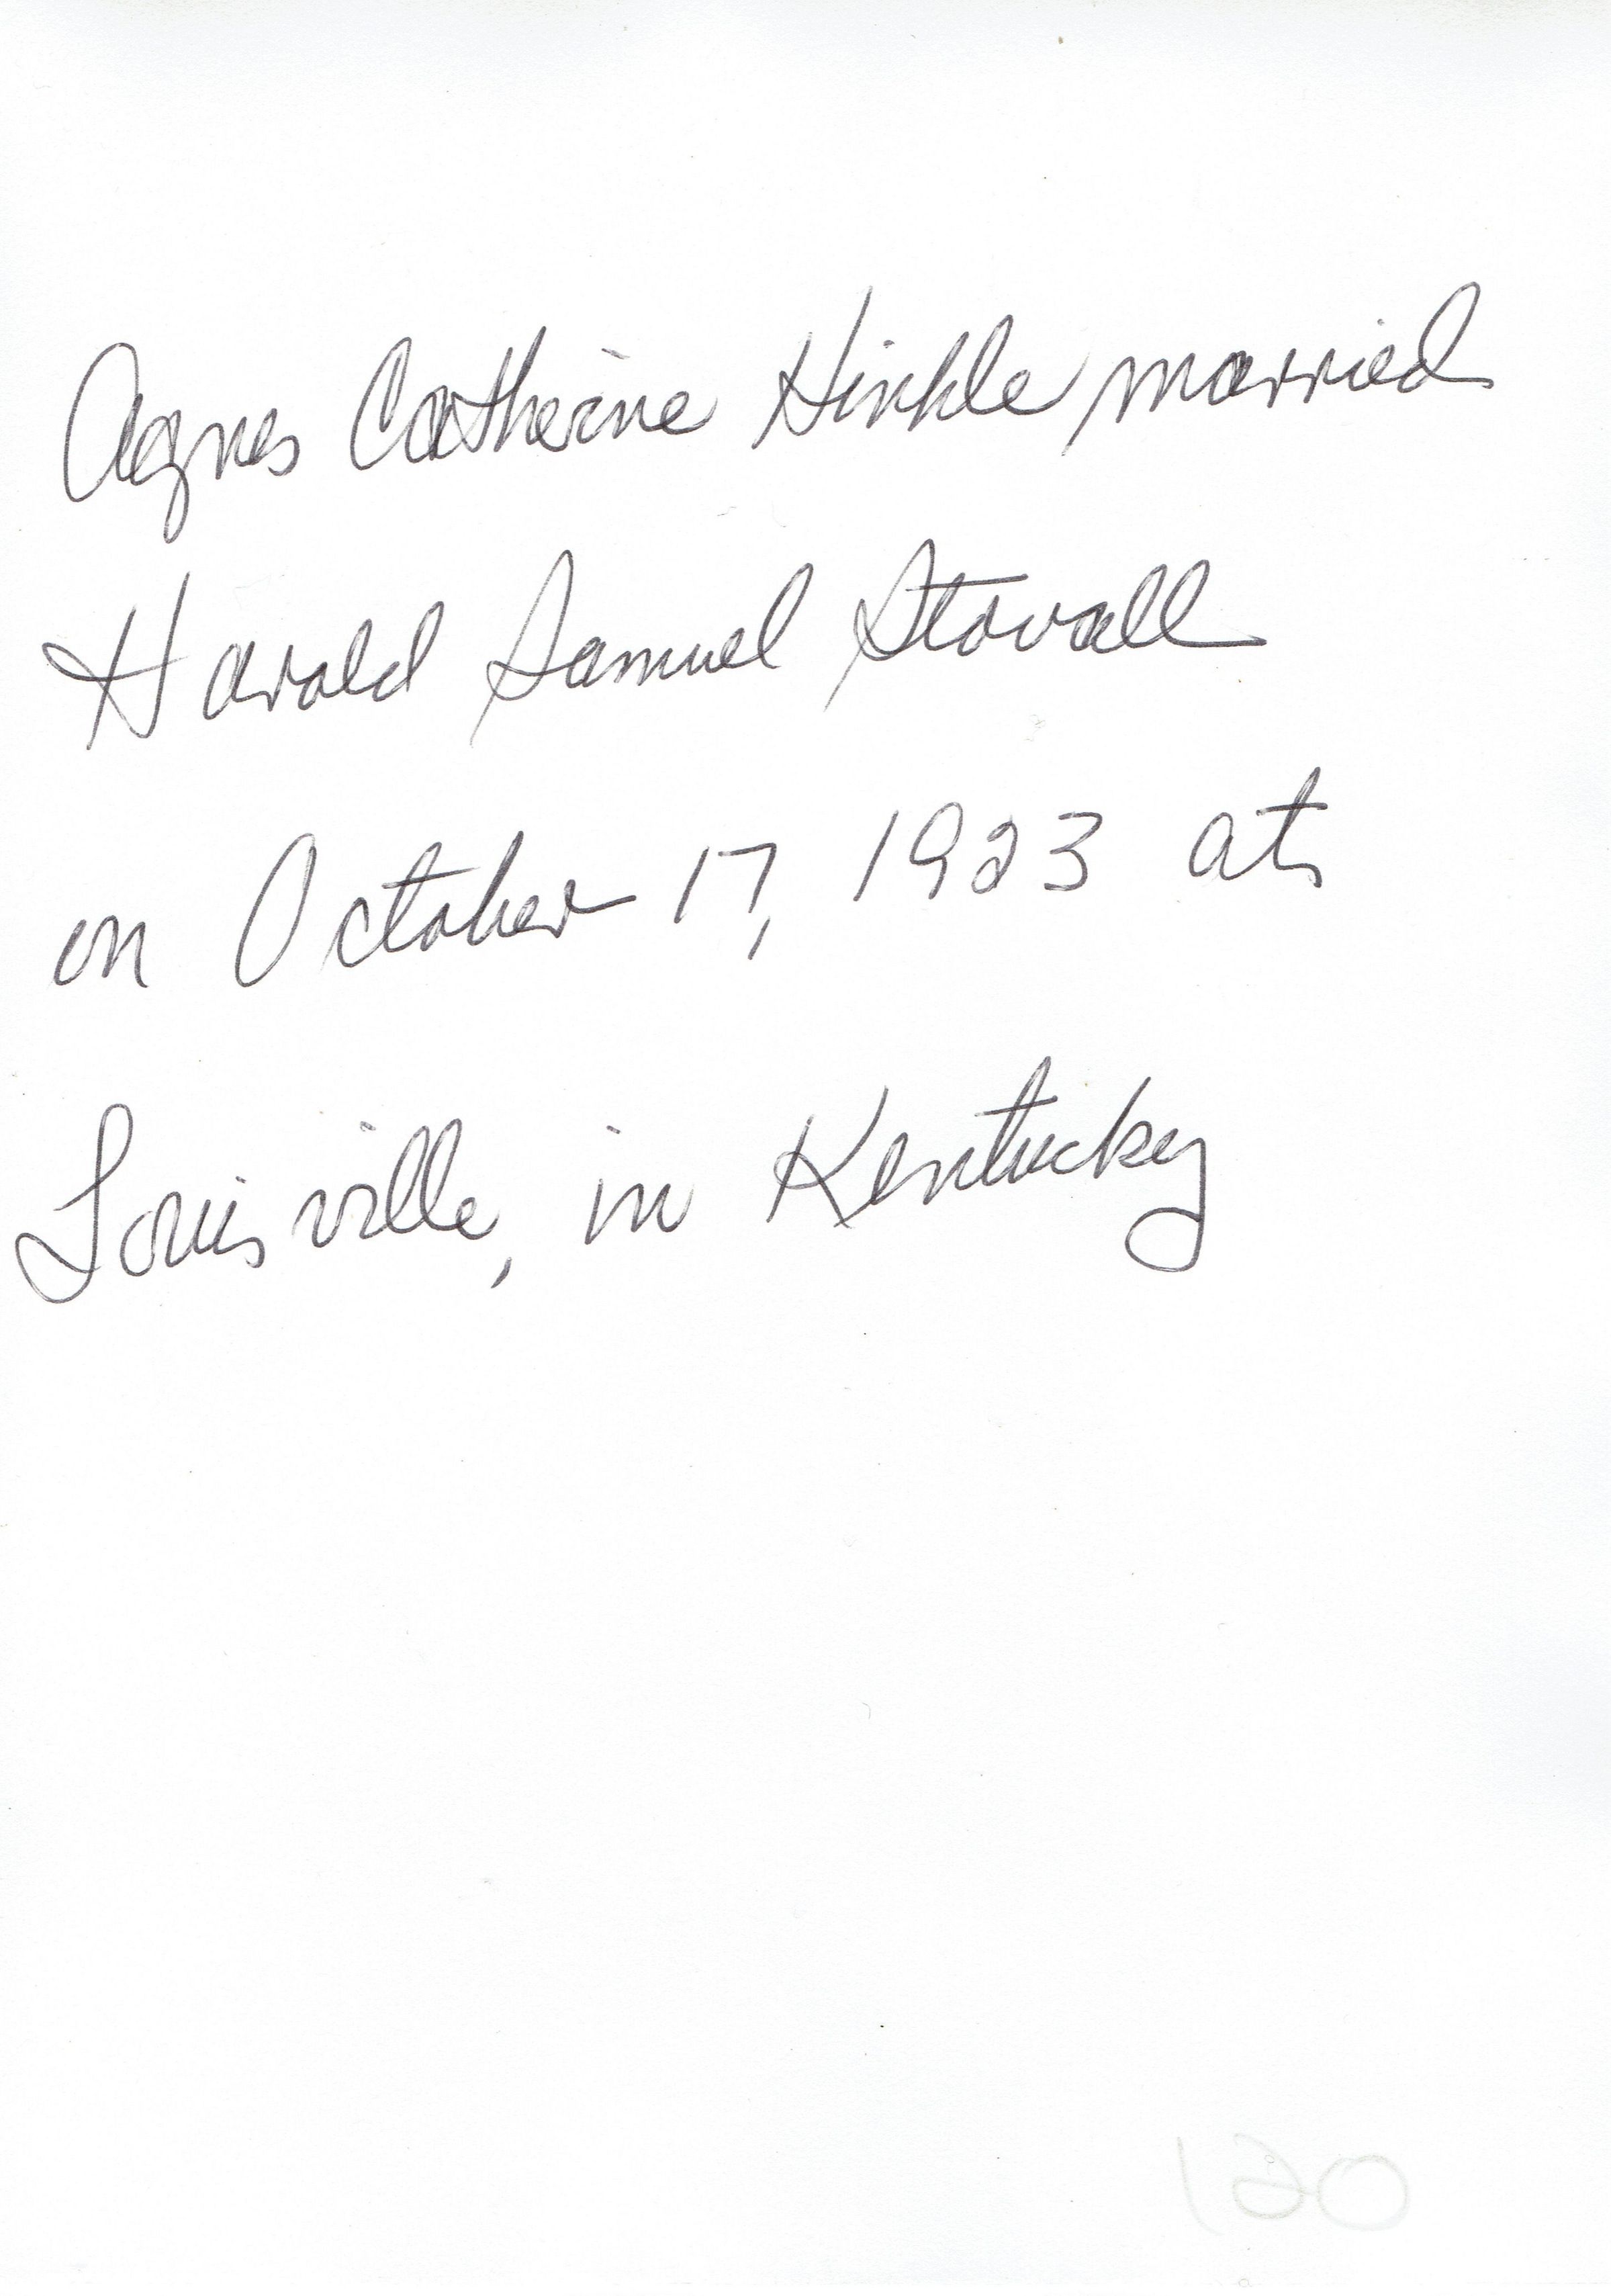 Agnes Catherine Hinkle married
Harold Samuel Stovall
on October 17, 1923 at
Louisville, in Kentucky
120